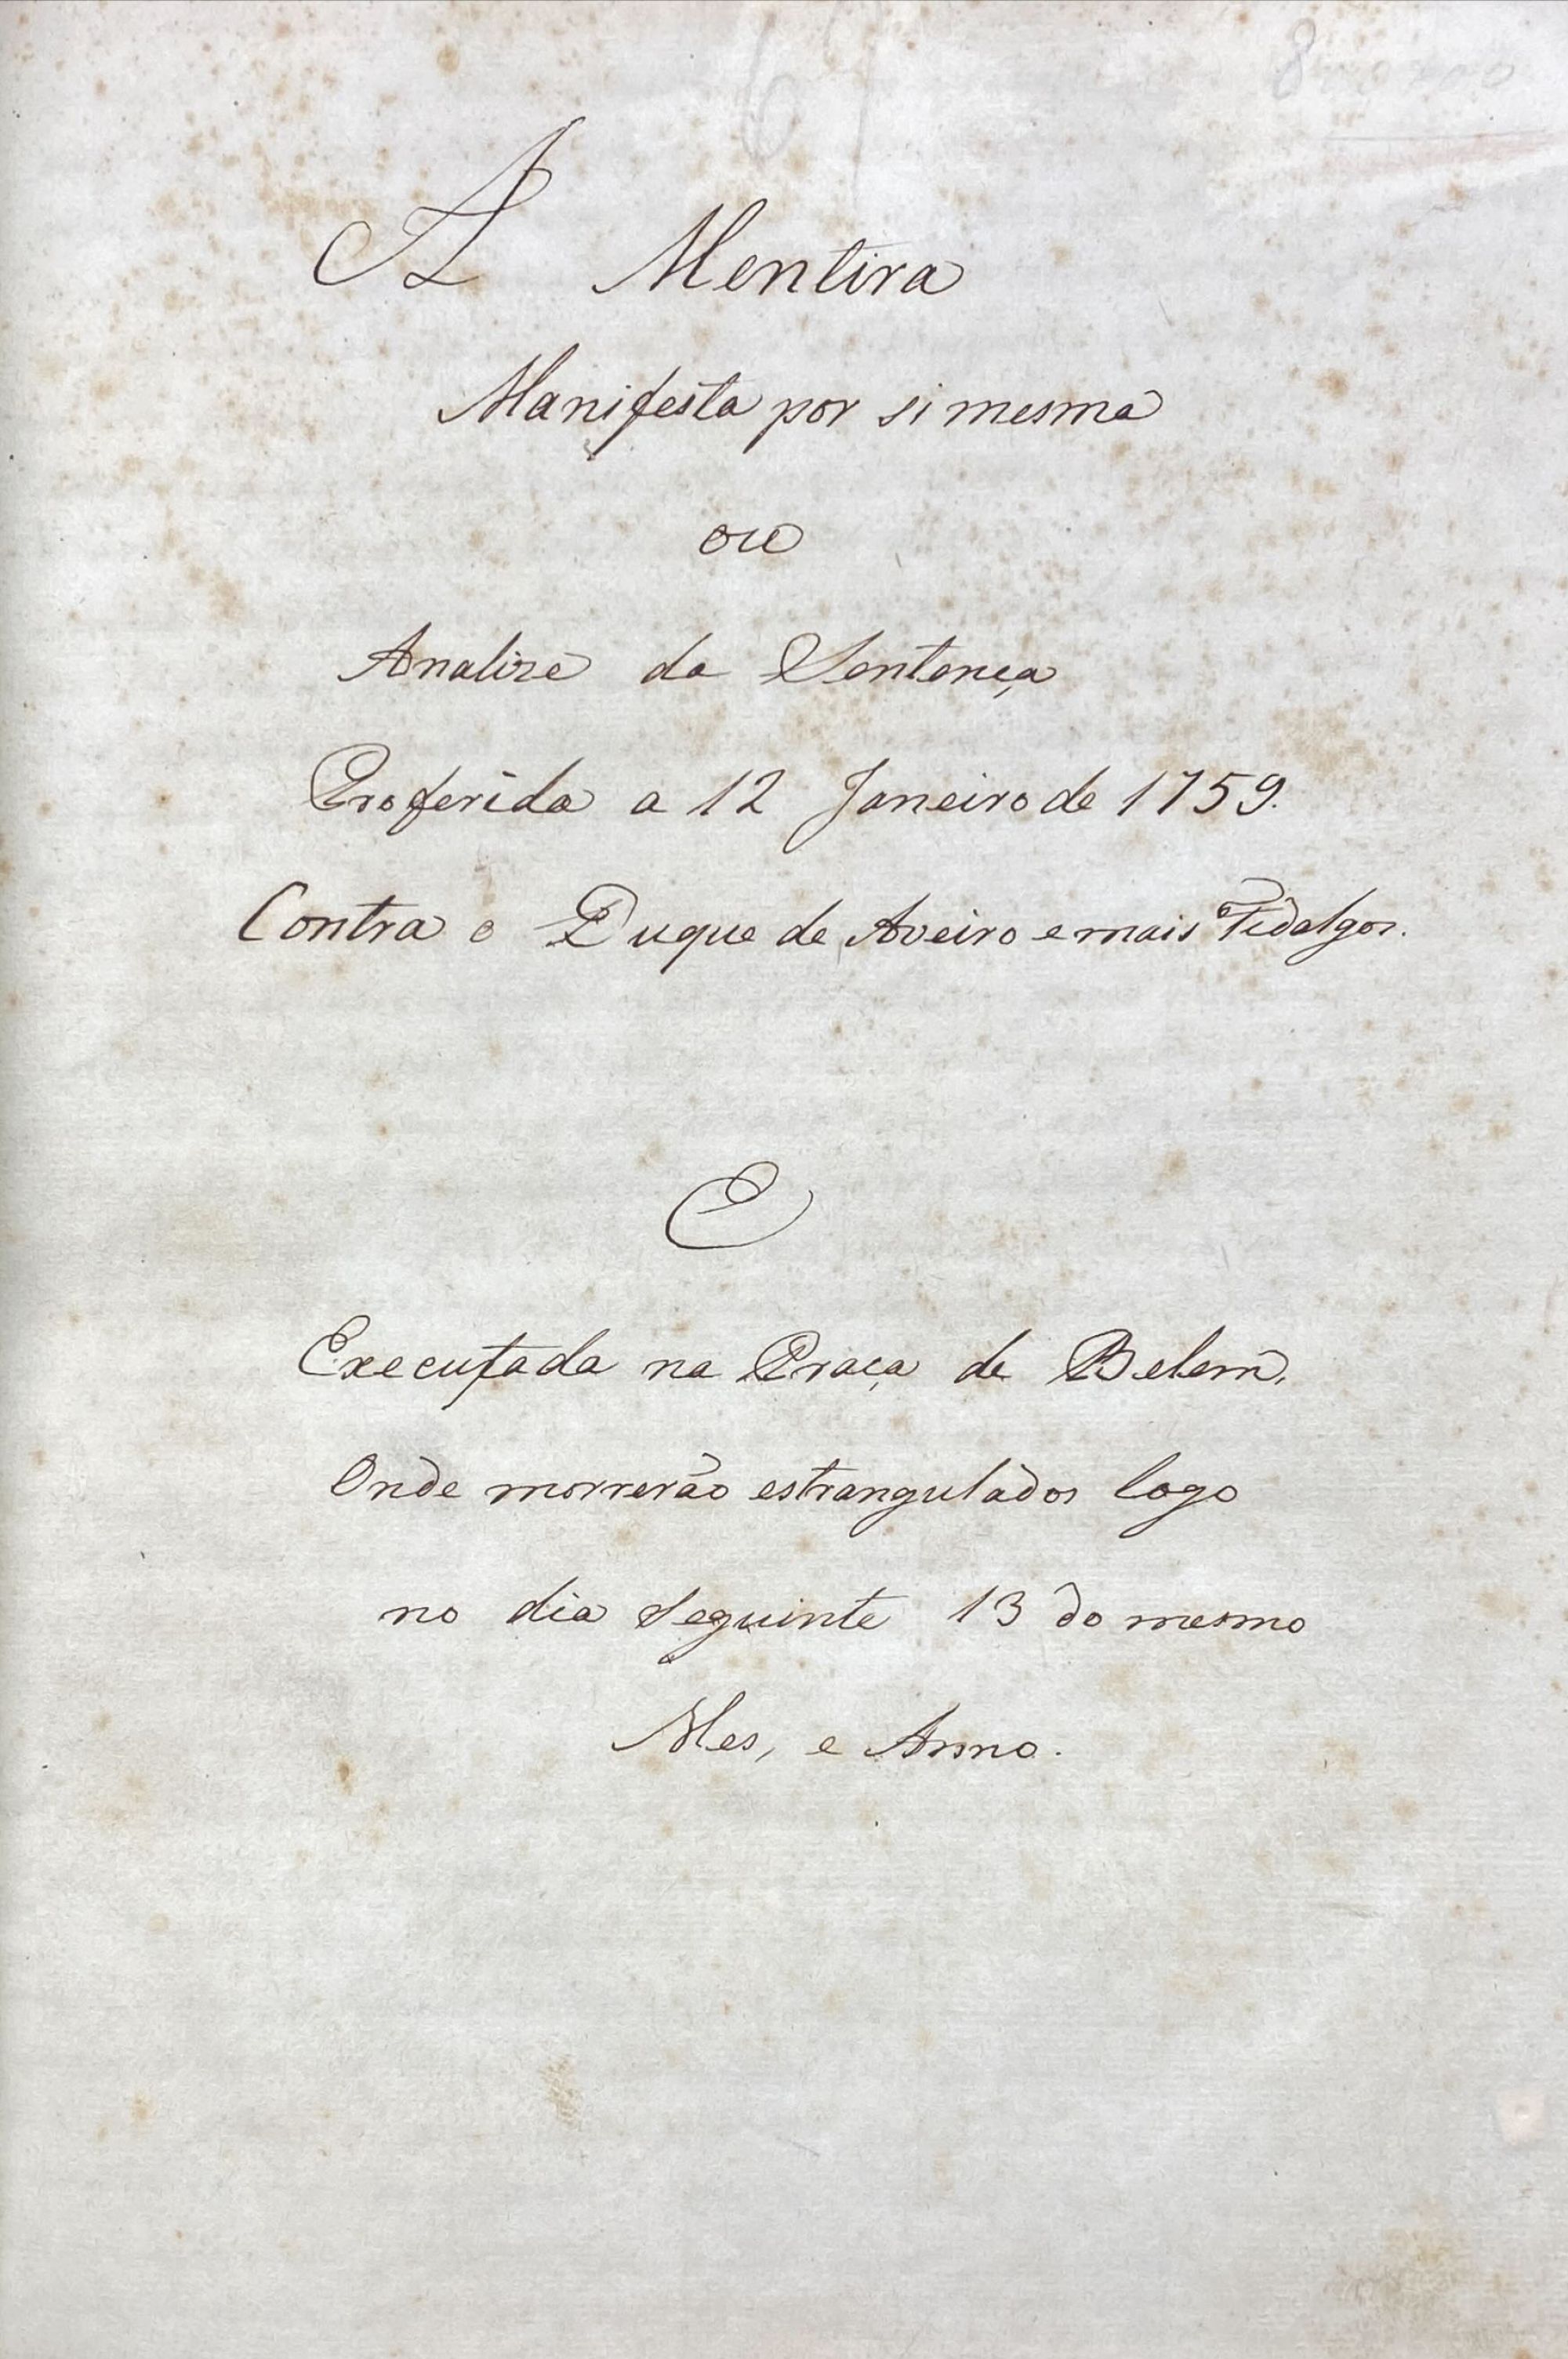 A Mentira
Manifesta por si mesma
ou
Analize da Sentença
Proferida a 12 Janeiro de 1759.
Contra o Duque de Aveiro e mais Fidalgos.
E
Executada na Praça de Belem,
Onde morrerão estrangulados logo
no dia seguinte 13 do mesmo
Mes, e Anno.